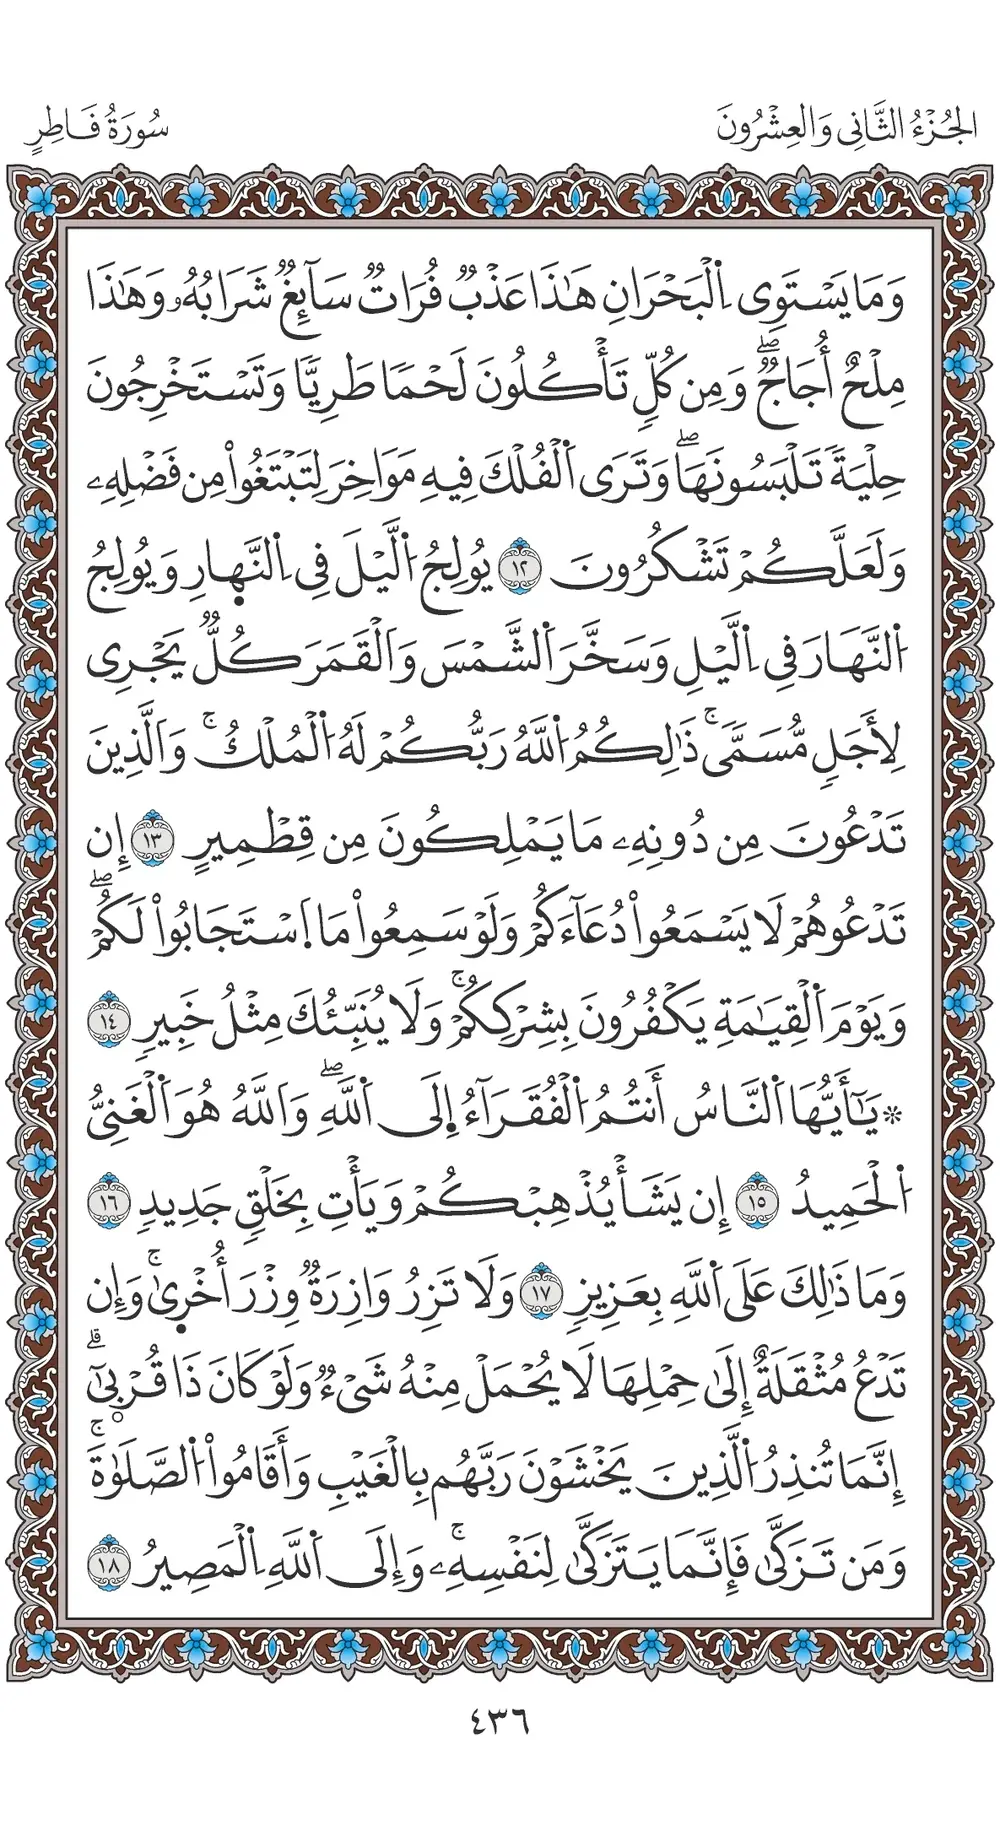 الجُزْءُ الثَّانِي وَالعِشْرُونَ
سُورَةُ فَاطِرٍ
وَمَا يَسْتَوِي اِ۬لْبَحْرَانِ هَٰذَا عَذْبٞ فُرَاتٞ سَآئِغٞ شَرَابُهُۥ وَهَٰذَا
مِلْحٌ أُجَاجٞۖ وَمِن كُلّٖ تَأْكُلُونَ لَحْمٗا طَرِيّٗا وَتَسْتَخْرِجُونَ
حِلْيَةٗ تَلْبَسُونَهَاۖ وَتَرَى اَ۬لْفُلْكَ فِيهِ مَوَاخِرَ لِتَبْتَغُواْ مِن فَضْلِهِۦ
وَلَعَلَّكُمْ تَشْكُرُونَ ١٢ يُولِجُ اُ۬لَّيْلَ فِي اِ۬لنَّهارِ وَيُولِجُ
اُ۬لنَّهَارَ فِي اِ۬لَّيْلِ وَسَخَّرَ اَ۬لشَّمْسَ وَالْقَمَرَ كُلّٞ يَجْرِي
لِأَجَلٖ مُّسَمّٗىۚ ذَٰلِكُمُ اُ۬للَّهُ رَبُّكُمْ لَهُ اُ۬لْمُلْكُۚ وَالَّذِينَ
تَدْعُونَ مِن دُونِهِۦ مَا يَمْلِكُونَ مِن قِطْمِيرٍ ١٣ إِن
تَدْعُوهُمْ لَا يَسْمَعُواْ دُعَآءَكُمْ وَلَوْ سَمِعُواْ مَا اَ۪سْتَجَابُواْ لَكُمْۖ
وَيَوْمَ اَ۬لْقِيَٰمَةِ يَكْفُرُونَ بِشِرْكِكُمْۚ وَلَا يُنَبِّئُكَ مِثْلُ خَبِيرٖ ١٤
۞ يَٰٓأَيُّهَا اَ۬لنَّاسُ أَنتُمُ اُ۬لْفُقَرَآءُ اِ۪لَى اَ۬للَّهِۖ وَاللَّهُ هُوَ اَ۬لْغَنِيُّ
اُ۬لْحَمِيدُ ١٥ إِن يَشَأْ يُذْهِبْكُمْ وَيَأْتِ بِخَلْقٖ جَدِيدٖ ١٦
وَمَا ذَٰلِكَ عَلَى اَ۬للَّهِ بِعَزِيزٖ ١٧ وَلَا تَزِرُ وَازِرَةٞ وِزْرَ أُخْر۪ىٰۚ وَإِن
تَدْعُ مُثْقَلَةٌ إِلَىٰ حِمْلِهَا لَا يُحْمَلْ مِنْهُ شَيْءٞ وَلَوْ كَانَ ذَا قُرْب۪ىٰٓۗ
إِنَّمَا تُنذِرُ اُ۬لَّذِينَ يَخْشَوْنَ رَبَّهُم بِالْغَيْبِ وَأَقَامُواْ اُ۬لصَّلَوٰةَۚ
وَمَن تَزَكَّىٰ فَإِنَّمَا يَتَزَكَّىٰ لِنَفْسِهِۦۚ وَإِلَى اَ۬للَّهِ اِ۬لْمَصِيرُ ١٨
٤٣٦